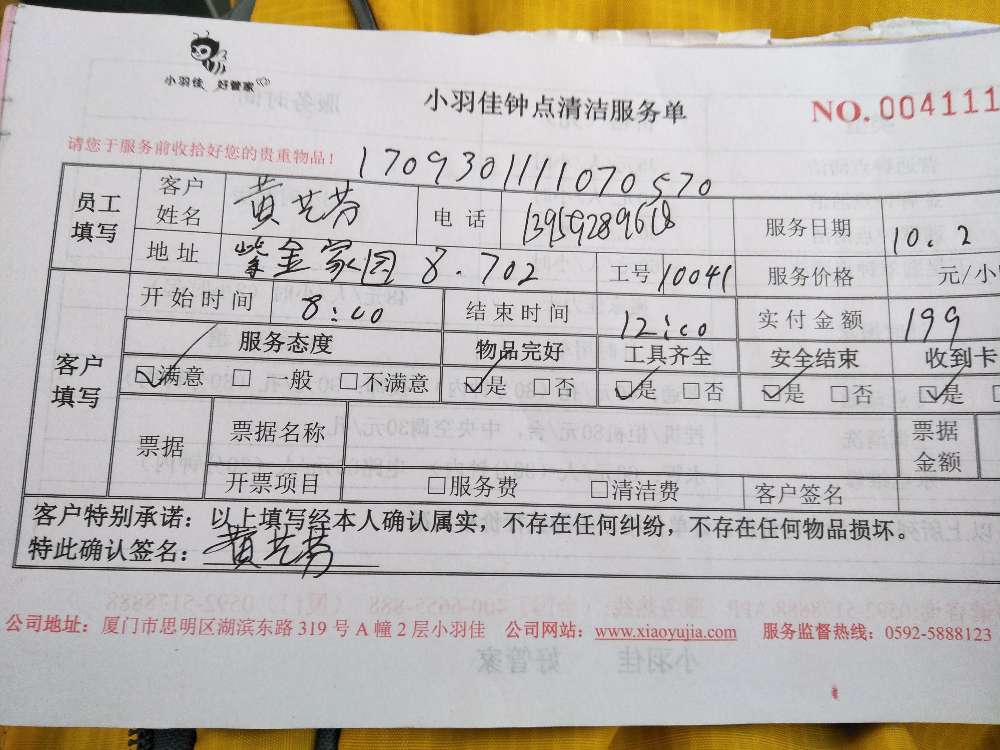 小羽佳 好管家
小羽佳钟点清洁服务单
NO. 004111
请您于服务前收拾好您的贵重物品！
1709301111070570
员工填写 客户姓名 黄芝芬 电话 13959289618 服务日期 10.2
地址 紫金家园 8.702 工号 10041 服务价格 元/小
客户填写 开始时间 8:00 结束时间 12:00 实付金额 199
服务态度 物品完好 工具齐全 安全结束 收到卡
☑满意 □一般 □不满意 ☑是 □否 ☑是 □否 ☑是 □否 ☑是
票据 票据名称 票据金额
开票项目 □服务费 □清洁费 客户签名
客户特别承诺：以上填写经本人确认属实，不存在任何纠纷，不存在任何物品损坏。
特此确认签名：黄芝芬
公司地址：厦门市思明区湖滨东路 319 号 A 幢 2 层小羽佳 公司网站：www.xiaoyujia.com 服务监督热线：0592-5888123